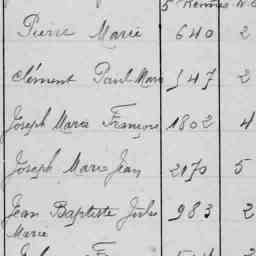 5 Rennes
Pierre Marie 640 2
Clément Paul Marie 547 2
Joseph Marie François 1802 4
Joseph Marie Jean 2170 5
Jean Baptiste Jules 983 2
Marie